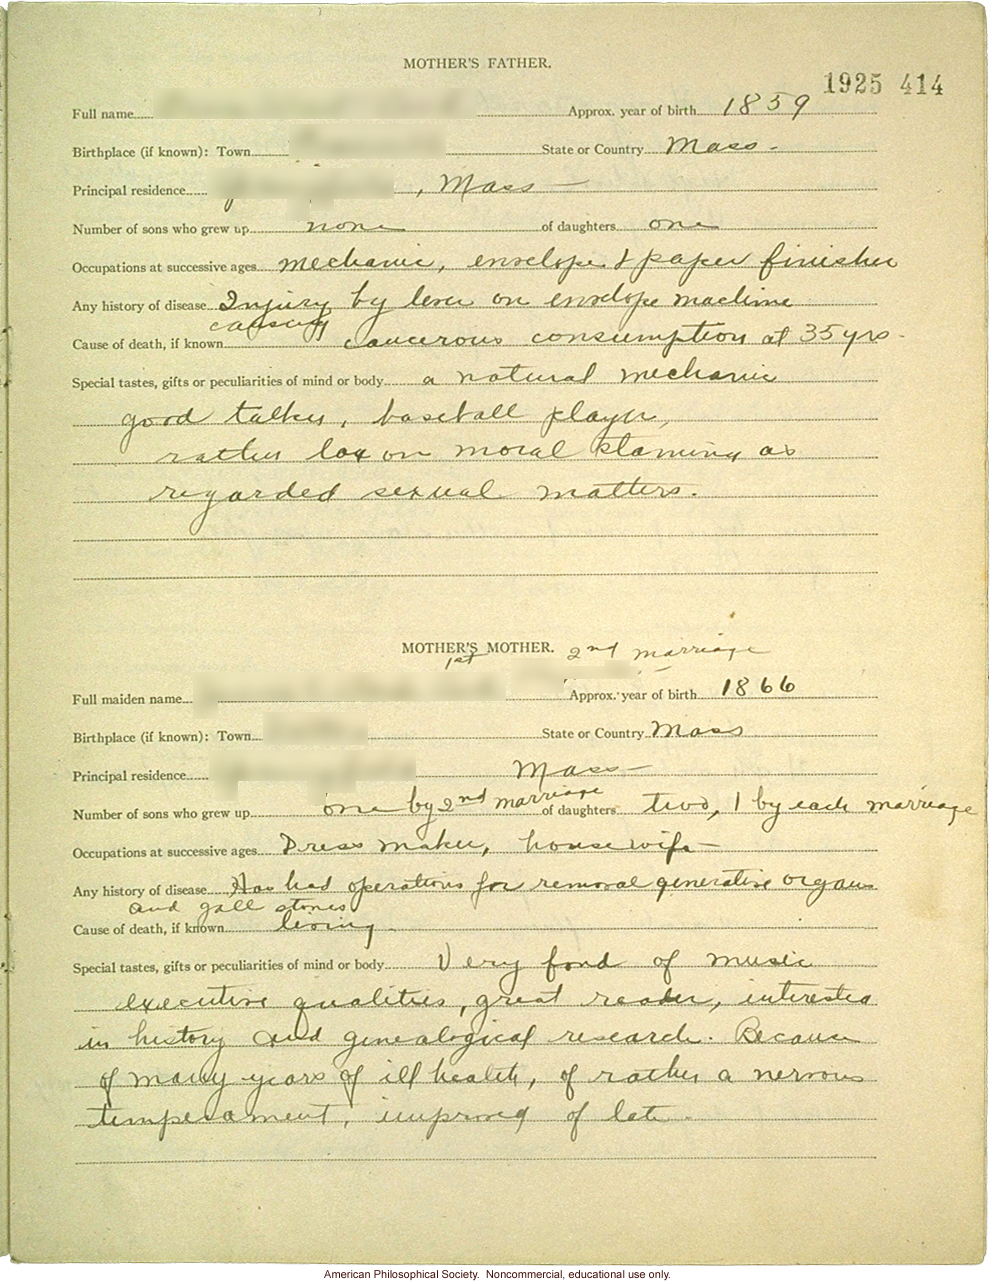 MOTHER'S FATHER.
1925 414
Full name Approx. year of birth 1859
Birthplace (if known): Town State or Country Mass.
Principal residence , Mass
Number of sons who grew up none of daughters one
Occupations at successive ages mechanic, envelope & paper finisher
Any history of disease Injury by lever on envelope machine
causing
Cause of death, if known cancerous consumption at 35 yrs.
Special tastes, gifts or peculiarities of mind or body a natural mechanic
good talker, baseball player,
rather lax on moral as
regarded sexual matters.
MOTHER'S MOTHER. 2nd marriage
1st
Full maiden name Approx. year of birth 1866
Birthplace (if known): Town State or Country Mass
Principal residence Mass
Number of sons who grew up one by 2nd marriage of daughters two, 1 by each marriage
Occupations at successive ages Dress maker, housewife
Any history of disease Has had operations for removal generative organs
and gall stones
Cause of death, if known living
Special tastes, gifts or peculiarities of mind or body Very fond of music
executive qualities, great reader, interested
in history and genealogical research. Because
of many years of ill health, of rather a nervous
temperament, improved of late.
American Philosophical Society. Noncommercial, educational use only.